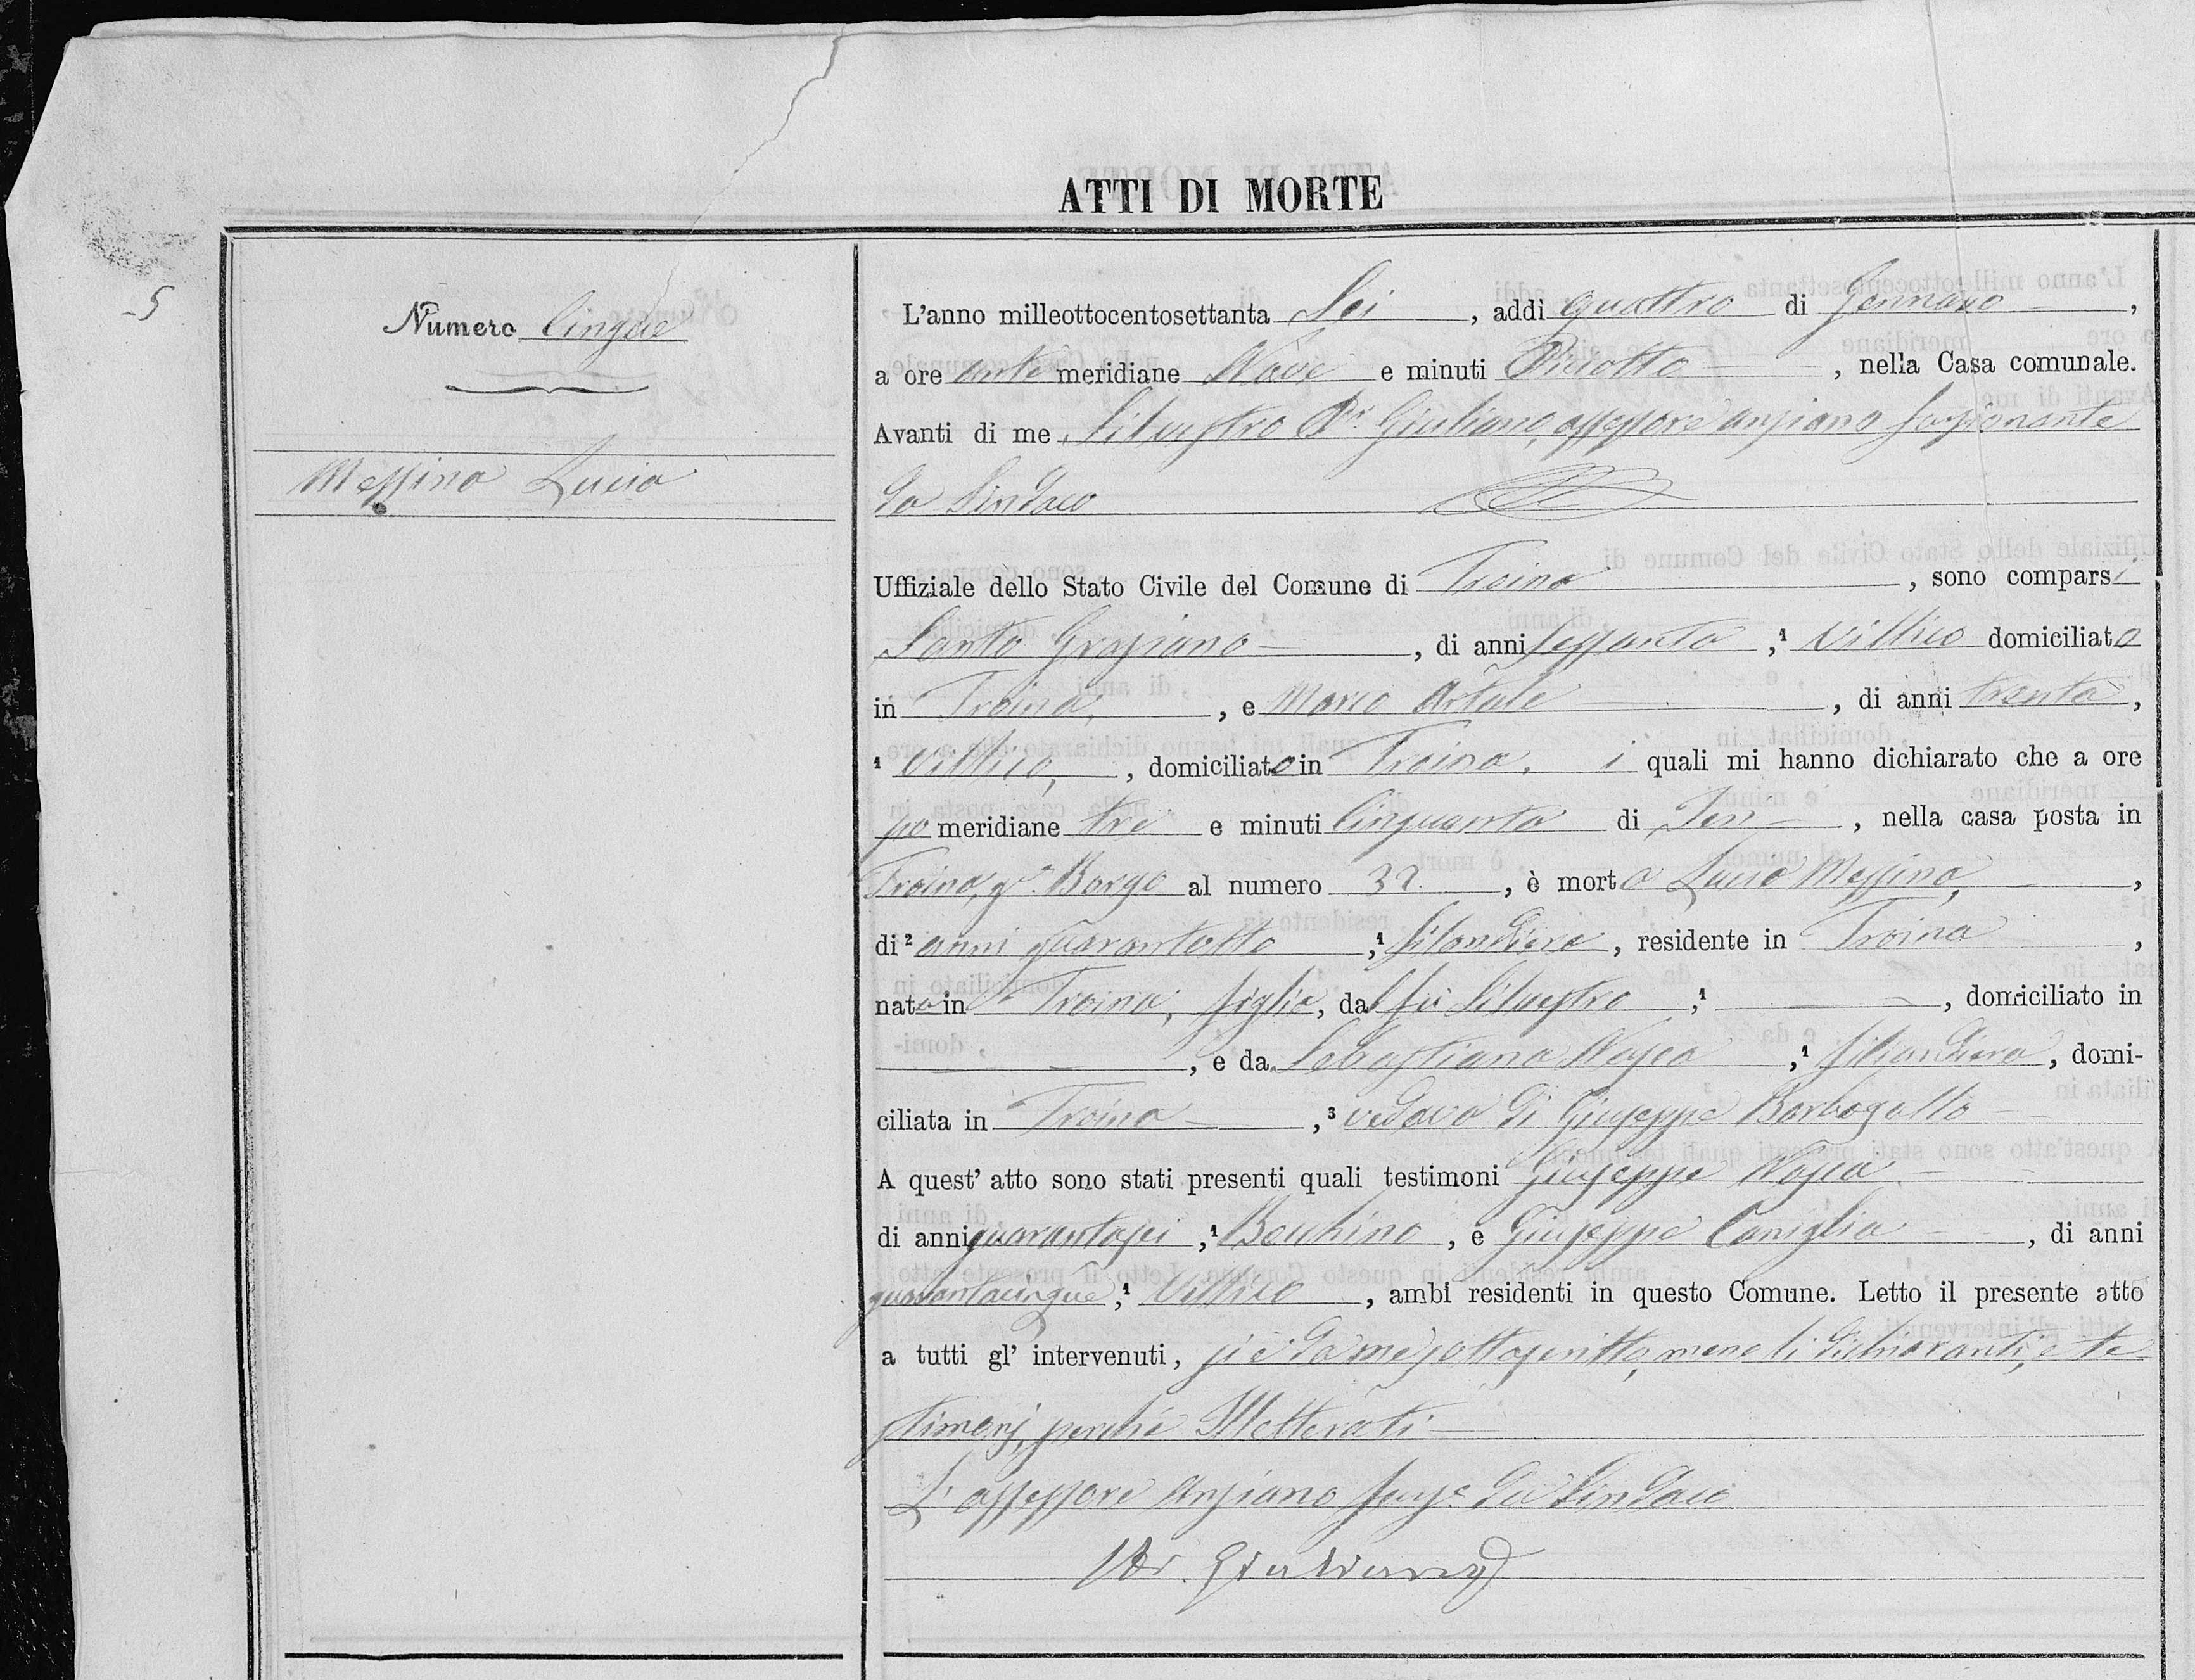 ATTI DI MORTE
5
Numero Cinque
Messina Lucia
L'anno milleottocentosettanta Sei, addì quattro di Gennaro,
a ore ante meridiane Nove e minuti Diciotto, nella Casa comunale.
Avanti di me Silvestro Dr. Giuliano, assessore anziano funzionante
da Sindaco
Uffiziale dello Stato Civile del Comune di Troina, sono comparsi
Santo Graziano, di anni sessanta, ¹ Villico domiciliato
in Troina, e Marco Artale, di anni trenta,
¹ Villico, domiciliato in Troina, i quali mi hanno dichiarato che a ore
po meridiane tre e minuti Cinquanta di Jeri, nella casa posta in
Troina, qr. Borgo al numero 32, è morta Lucia Messina,
di ² anni quarantotto, ¹ filandiera, residente in Troina,
nata in Troina, figlia, dal fù Silvestro, ¹, domiciliato in
, e da Sebastiana Nasca, ¹ filandiera, domi-
ciliata in Troina, ³ vedova di Giuseppe Barbagallo
A quest' atto sono stati presenti quali testimoni Giuseppe Nasca
di anni quarantasei, ¹ Becchino, e Giuseppe Caniglia, di anni
quarantacinque, ¹ Villico, ambi residenti in questo Comune. Letto il presente atto
a tutti gl' intervenuti, si è da me sottoscritto, meno li dichiaranti, e te-
stimonj, perché Illetterati
L' assessore Anziano funz.e da Sindaco
Dr. Giuliano